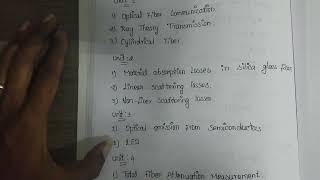 1) Optical Fiber Communication.
2) Ray Theory Transmission.
3) Cylindrical Fiber.
Unit:-2
1) Material absorption losses in silica glass fiber
2) Linear scattering losses.
3) Non-liner scattering losses.
Unit:3
1) Optical emission from Semiconductors
2) LED
Unit:4
1) Total Fiber Attenuation Measurement.